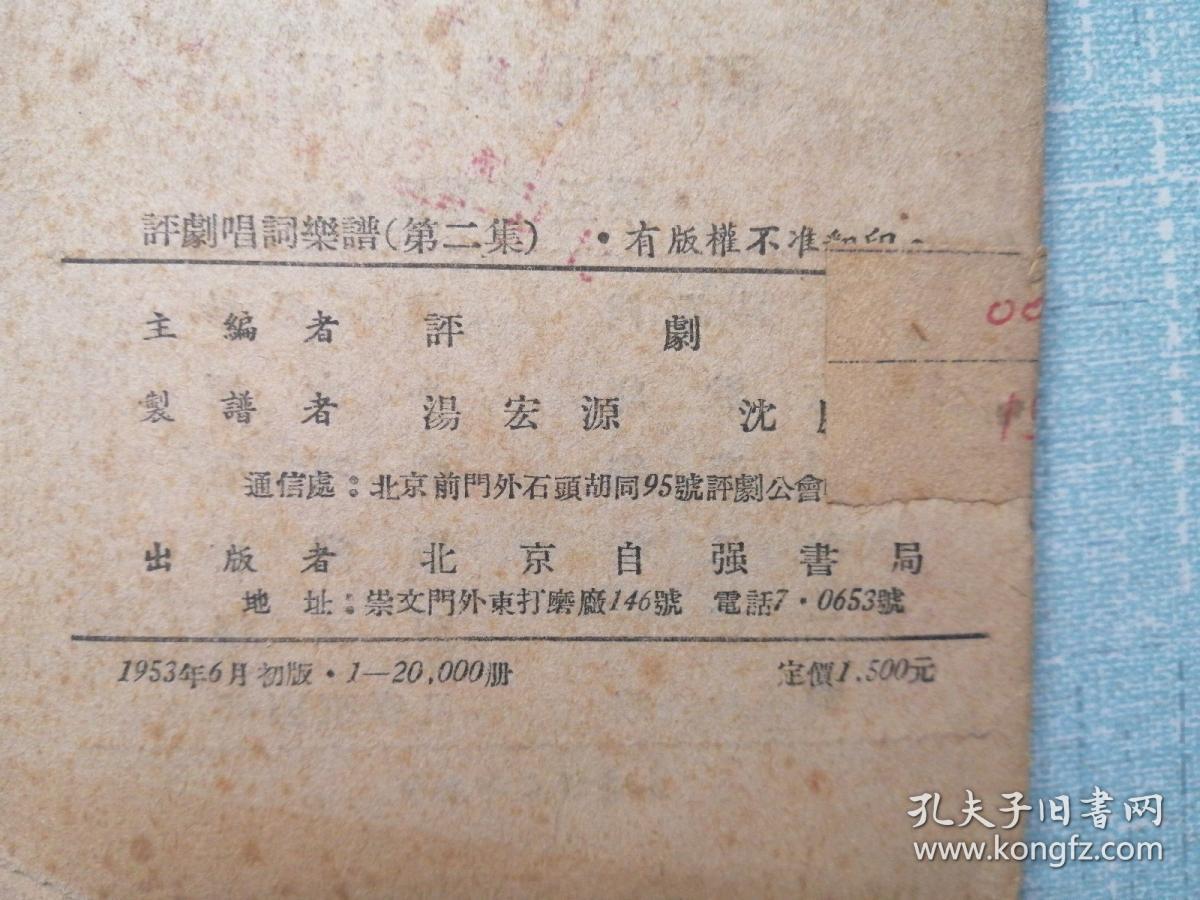 評劇唱詞樂譜(第二集) ・有版權不准翻印・
主編者 評劇
製譜者 湯宏源 沈
通信處：北京前門外石頭胡同95號評劇公會
出版者 北京自强書局
地址：崇文門外東打磨廠146號 電話7・0653號
1953年6月初版・1—20,000册 定價1.500元
00
孔夫子旧书网
www.kongfz.com